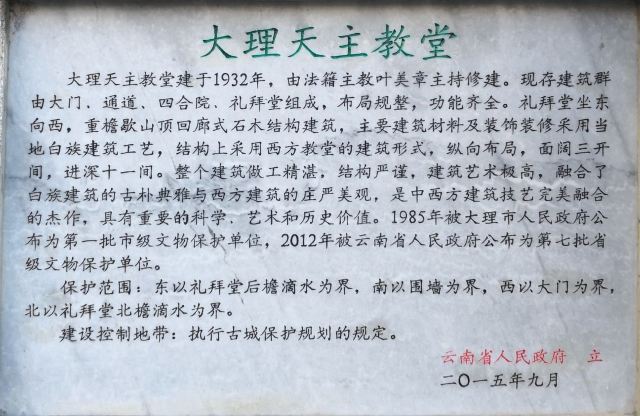 大理天主教堂
大理天主教堂建于1932年，由法籍主教叶美章主持修建。现存建筑群
由大门、通道、四合院、礼拜堂组成，布局规整，功能齐全。礼拜堂坐东
向西，重檐歇山顶回廊式石木结构建筑，主要建筑材料及装饰装修采用当
地白族建筑工艺，结构上采用西方教堂的建筑形式，纵向布局，面阔三开
间，进深十一间。整个建筑做工精湛，结构严谨，建筑艺术极高，融合了
白族建筑的古朴典雅与西方建筑的庄严美观，是中西方建筑技艺完美融合
的杰作，具有重要的科学、艺术和历史价值。1985年被大理市人民政府公
布为第一批市级文物保护单位，2012年被云南省人民政府公布为第七批省
级文物保护单位。
保护范围：东以礼拜堂后檐滴水为界，南以围墙为界，西以大门为界，
北以礼拜堂北檐滴水为界。
建设控制地带：执行古城保护规划的规定。
云南省人民政府 立
二〇一五年九月